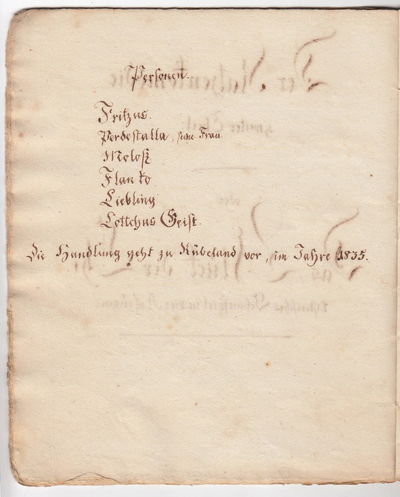 Personen.
Fritzus.
Perdestalla, seine Frau
Meloß
Flanko
Liebling
Lottchns Geist.
Die Handlung geht zu Rübeland vor, im Jahre 1835.